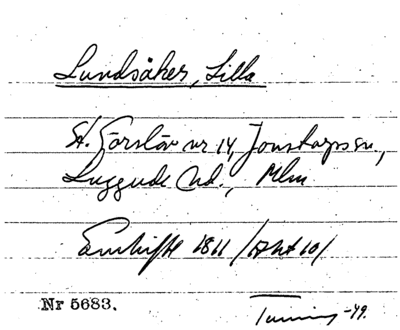 Lundsåker, Lilla
St. Görslöv nr 14, Jonstorps sn.,
Luggude hd., Mlm
Enskifte 1811 /Akt 10/
Nr 5683.
-49.